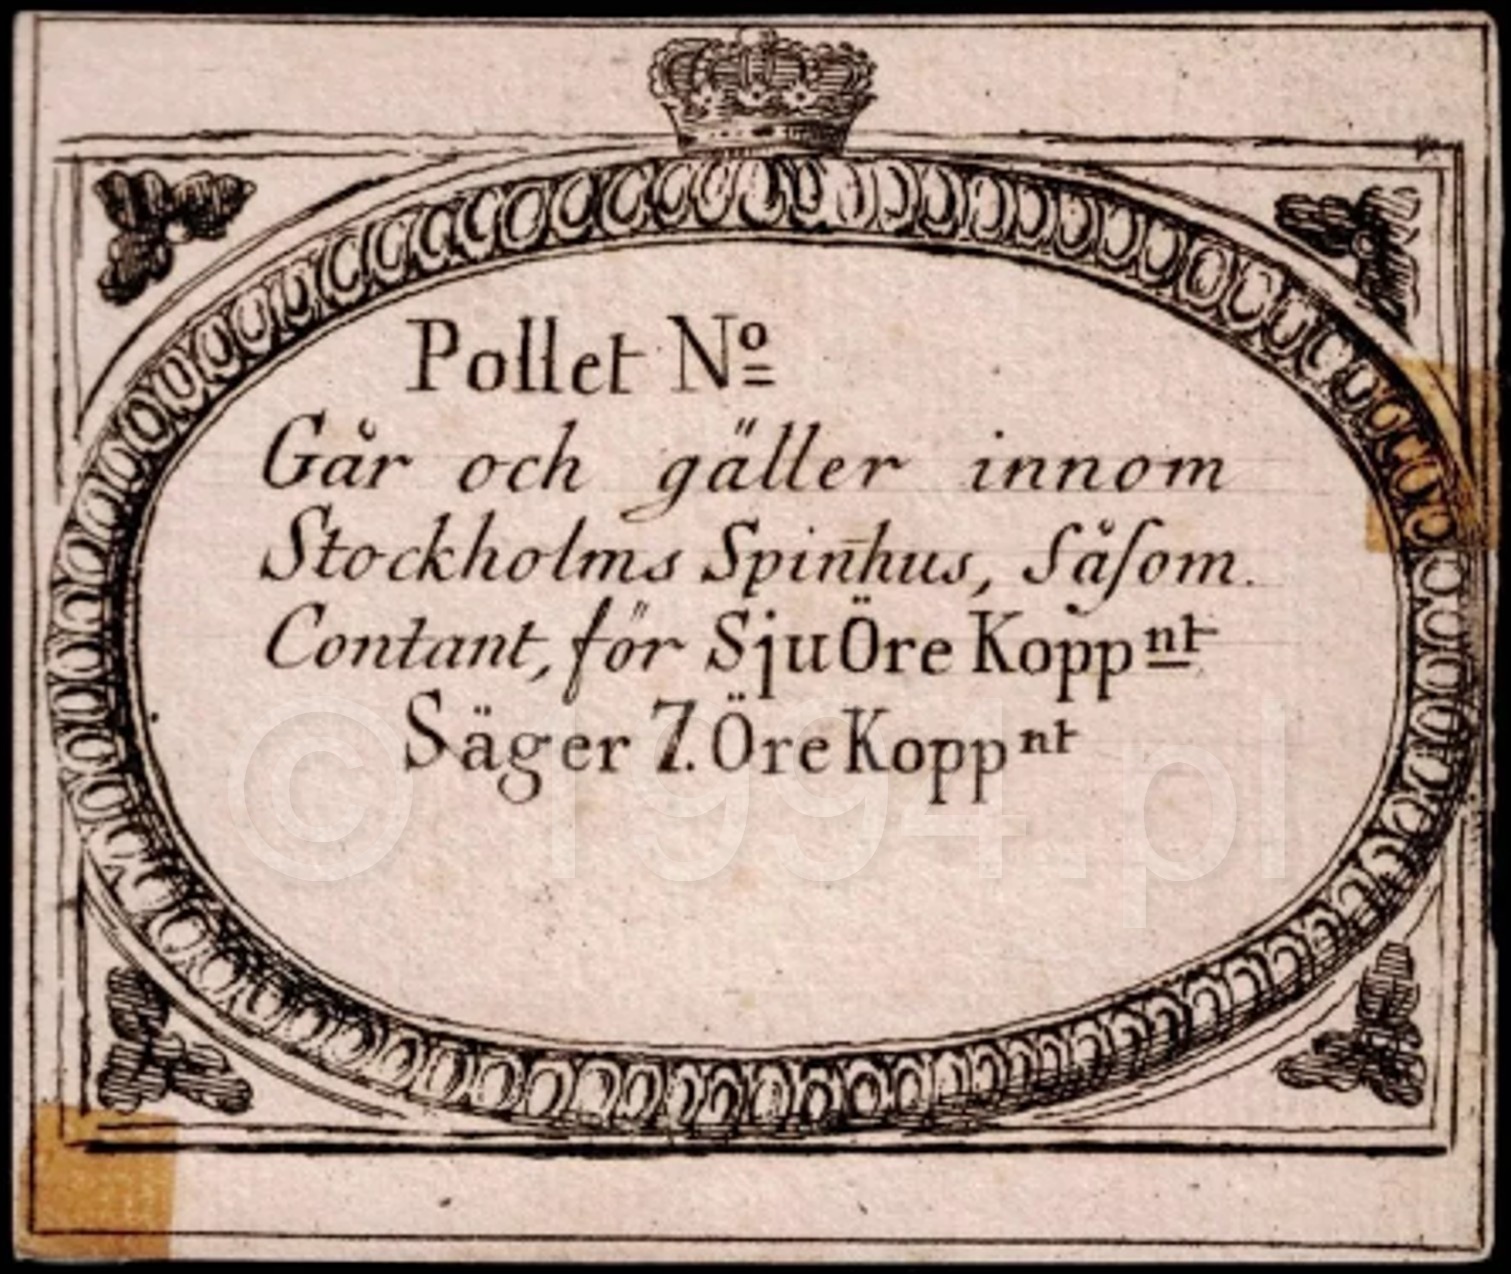 Pollet Nº
Går och gäller innom
Stockholms Spin̄hus, Såſom
Contant, för Sju Öre Koppnt
Säger 7. Öre Koppnt
© 1994.pl